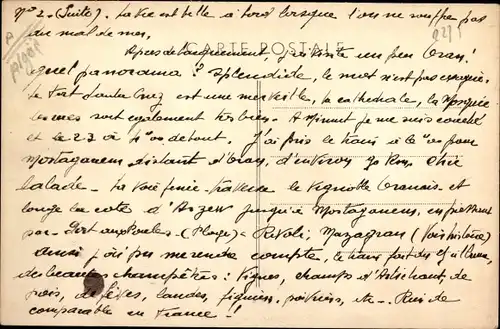 N° 2. (Suite). La vie est belle à bord lorsque l'on ne souffre pas
du mal de mer.
A
Alger
22/5
CARTE POSTALE
Après débarquement, j'ai visité un peu Oran!
quel panorama! Splendide, le mot n'est pas exagéré.
Le Fort Santa Cruz est une merveille, la cathédrale, la Mosquée
sont également très bien. A Minuit je me suis couché
et le 23 à 4h00 debout. J'ai pris le train à 6h00 pour
Mostaganem distant d'Oran, d'environ 90 Km. Chic
balade. La voie ferrée traverse le vignoble Oranais et
longe la côte d'Arzew jusqu'à Mostaganem, en passant
par Port aux Poules (Plage) Rivoli, Mazagran (Voir histoire)
Ainsi j'ai pu me rendre compte, le train fait du
de beautés champêtres: vignes, champs d'Artichaut de
pois, de fèves, landes, figuiers, poiriers, etc. Rien de
comparable en France!